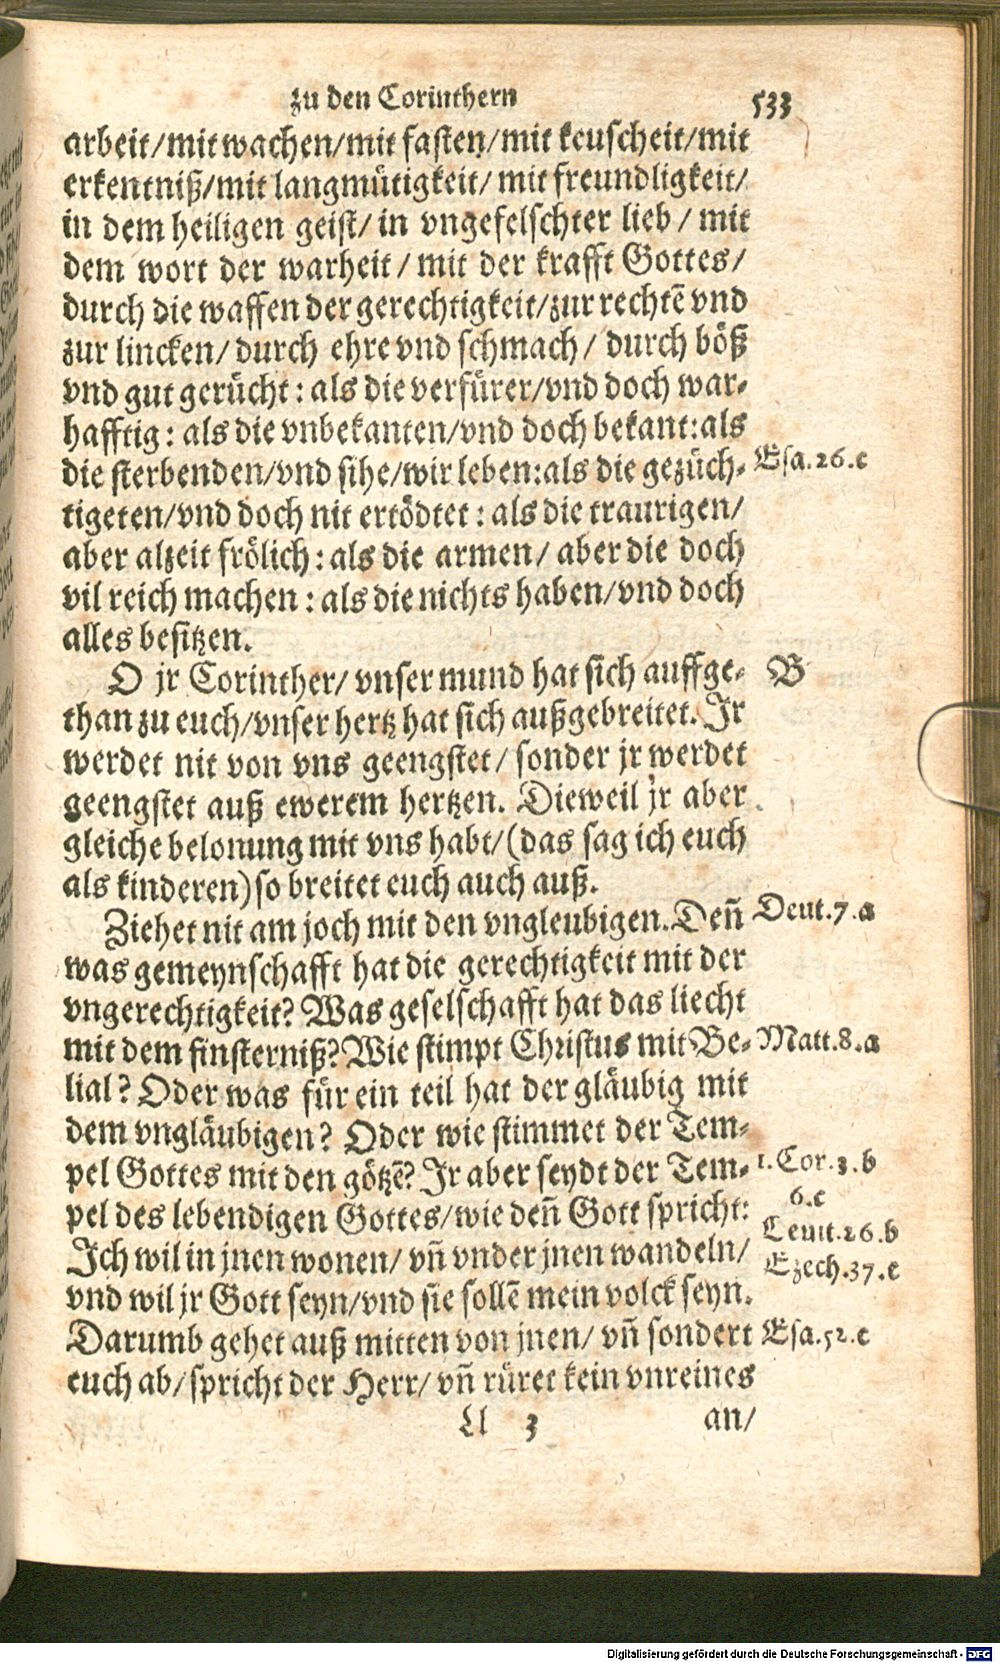 zu den Corinthern 533
arbeit/mit wachen/mit fasten/mit keuscheit/mit
erkentniß/mit langmütigkeit/ mit freundligkeit/
in dem heiligen geist/ in vngefelschter lieb / mit
dem wort der warheit / mit der krafft Gottes/
durch die waffen der gerechtigkeit/zur rechtē vnd
zur lincken/ durch ehre vnd schmach / durch böß
vnd gut gerücht : als die verfürer/vnd doch war-
hafftig : als die vnbekanten/vnd doch bekant:als
die sterbenden/vnd sihe/wir leben:als die gezüch- Esa.26.c
tigeten/vnd doch nit ertödtet : als die traurigen/
aber alzeit frölich : als die armen/ aber die doch
vil reich machen : als die nichts haben/vnd doch
alles besitzen.
O jr Corinther/ vnser mund hat sich auffge- B
than zu euch/vnser hertz hat sich außgebreitet. Ir
werdet nit von vns geengstet/ sonder jr werdet
geengstet auß ewerem hertzen. Dieweil jr aber
gleiche belonung mit vns habt/(das sag ich euch
als kinderen)so breitet euch auch auß.
Ziehet nit am joch mit den vngleubigen. Deñ Deut.7.a
was gemeynschafft hat die gerechtigkeit mit der
vngerechtigkeit? Was geselschafft hat das liecht
mit dem finsterniß? Wie stimpt Christus mit Be- Matt.8.a
lial? Oder was für ein teil hat der gläubig mit
dem vngläubigen? Oder wie stimmet der Tem-
pel Gottes mit den götzē? Ir aber seydt der Tem- 1.Cor.3.b
6.c
pel des lebendigen Gottes/wie deñ Gott spricht: Leuit.26.b
Ich wil in jnen wonen/ vñ vnder jnen wandeln/ Ezech.37.e
vnd wil jr Gott seyn/vnd sie sollē mein volck seyn.
Darumb gehet auß mitten von jnen/ vñ sondert Esa.52.c
euch ab/spricht der Herr/ vñ rüret kein vnreines
Ll 3 an/
Digitalisierung gefördert durch die Deutsche Forschungsgemeinschaft - DFG